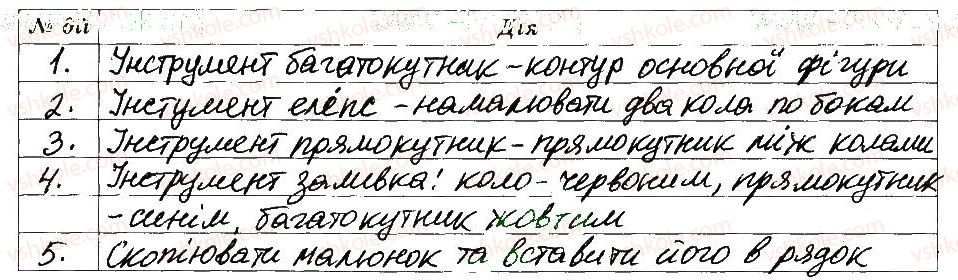 № дії Дія
1. Інструмент багатокутник - контур основної фігури
2. Інстумент еліпс - намалювати два кола по бокам
3. Інструмент прямокутник - прямокутник між колами
4. Інструмент заливка! коло - червоним, прямокутник
- синім, багатокутник жовтим
5. Скопіювати малюнок та вставити його в рядок